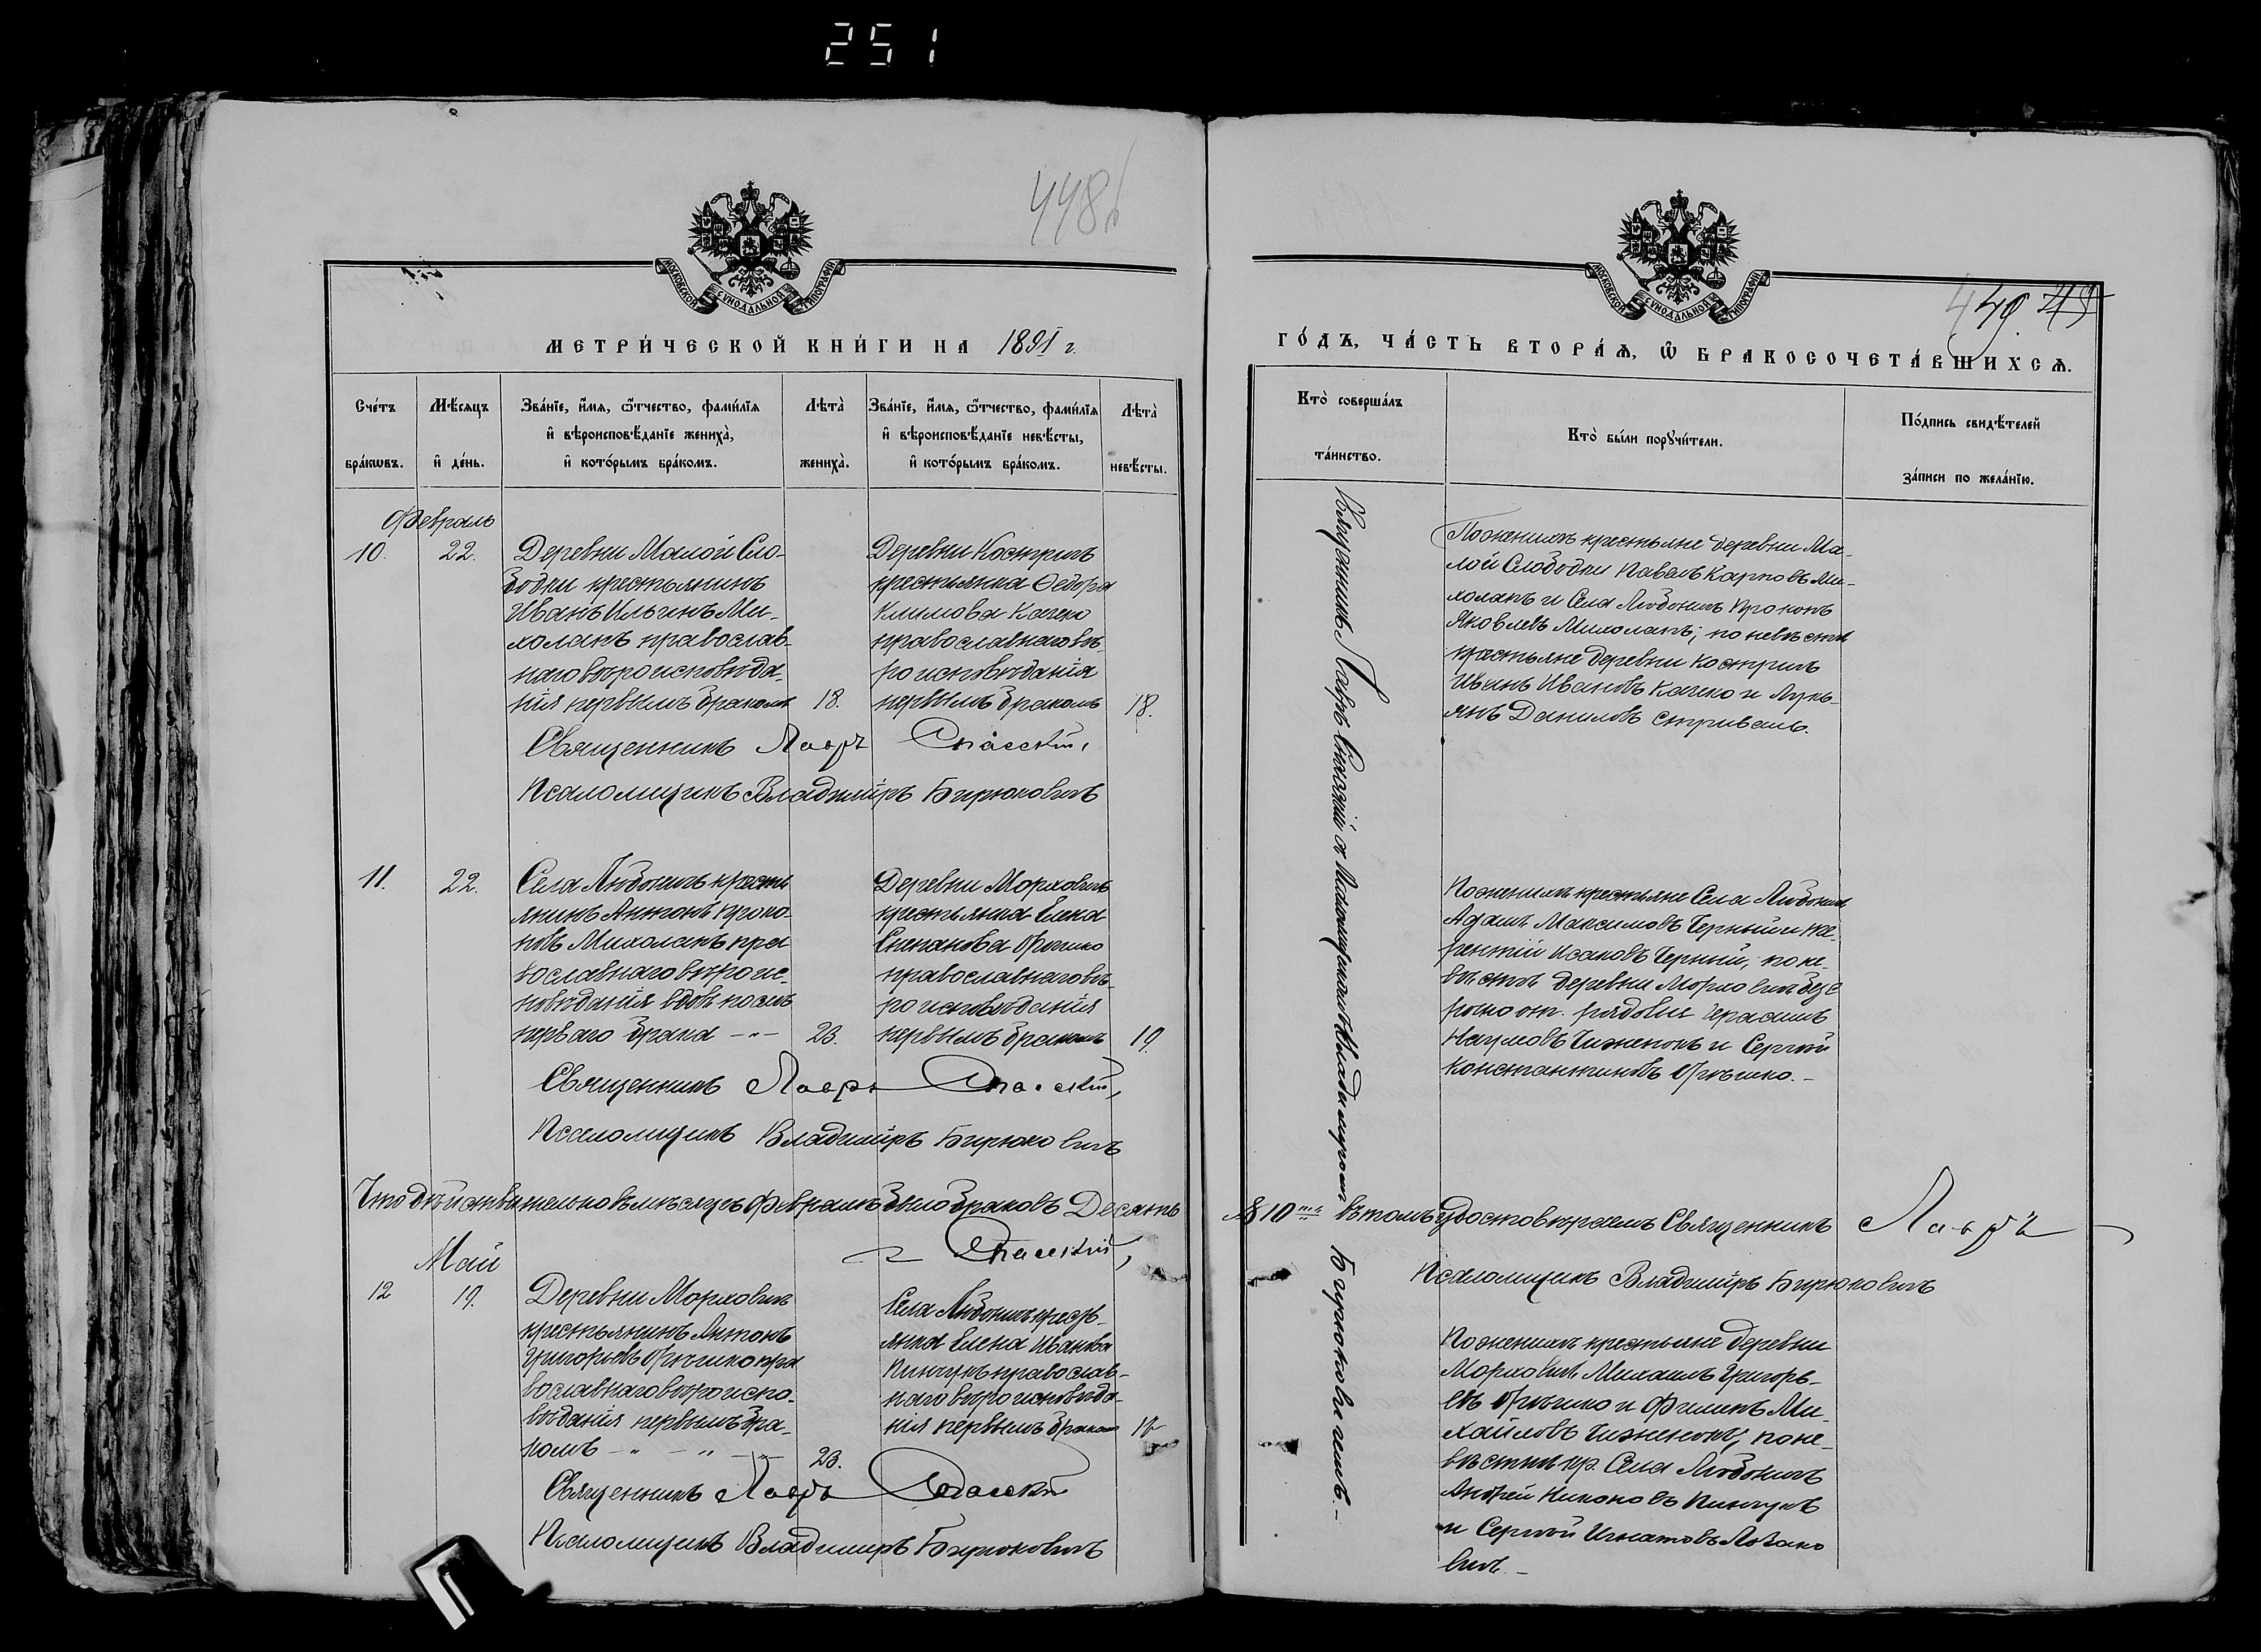 251
448б
МОСКОВСКОЙ СѴНОДАЛЬНОЙ ТИПОГРАФІИ
МЕТРИ́ЧЕСКОЙ КНИ́ГИ НА 1891 г.
Сче́тъ бра́кѡвъ.
Мѣ́сяцъ и҆ де́нь.
Зва́нїе, и҆́мѧ, ѻ҆́тчество, фами́лїѧ
и҆ вѣроисповѣ́данїе жениха̀,
и҆ кото́рымъ бра́комъ.
Лѣта̀ жениха̀.
Зва́нїе, и҆́мѧ, ѻ҆́тчество, фами́лїѧ
и҆ вѣроисповѣ́данїе невѣ́сты,
и҆ кото́рымъ бра́комъ.
Лѣта̀ невѣ́сты.
Февраль
10.
22.
Деревни Малой Сло-
бодки крестьянинъ
Иванъ Ильинъ Ми-
холапъ православ-
наго вѣроисповѣда-
нія первымъ бракомъ
18.
Деревни Костричъ
крестьянка Ѳедора
Климова Качко
православнаго вѣ-
роисповѣданія
первымъ бракомъ
18.
Священникъ Лавръ Спасскій,
Псаломщикъ Владиміръ Бирюковичъ
11.
22.
Села Любоничъ кресть
янинъ Антонъ Проко-
повъ Михолапъ пра
вославнаго вѣроис-
повѣданія вдовъ послѣ
перваго брака -"-
23.
Деревни Морховичъ
крестьянка Елена
Степанова
православнаго вѣ-
роисповѣданія
первымъ бракомъ
19.
Священникъ Лавръ Спасскій,
Псаломщикъ Владиміръ Бирюковичъ
Что дѣйствительно въ мѣсяцѣ Февралѣ было браковъ Десять
Спасскій,
Май
12
19.
Деревни Морховичъ
крестьянинъ Антонъ
Григорьевъ пра
вославнаго вѣроиспо-
вѣданія первымъ бра-
комъ -"- -"-
23.
Села Любоничъ кресть-
янка Елена Иванова
Пинчукъ православ-
наго вѣроисповѣда-
нія первымъ бракомъ
Священникъ Лавръ Спасскій
Псаломщикъ Владиміръ Бирюковичъ
МОСКОВСКОЙ СѴНОДАЛЬНОЙ ТИПОГРАФІИ
449.
ГО́ДЪ, ЧА́СТЬ ВТОРА́Ѧ, Ѡ҆ БРАКОСОЧЕТА́ВШИХСѦ.
Кто̀ соверша́лъ та́инство.
Кто̀ бы́ли порꙋчи́тели.
По́дпись свидѣ́телей за́писи по жела́нїю.
Священникъ Лавръ Спасскій съ Псаломщикомъ Владиміромъ Бирюковичемъ.-
По женихѣ крестьяне деревни Ма-
лой Слободки Павелъ Карповъ Ми-
холапъ и Села Любоничъ Прокопъ
Яковлевъ Михолапъ; по невѣстѣ
крестьяне деревни Костричъ
Иванъ Ивановъ Качко и Лукь-
янъ Даниловъ
По женихѣ крестьяне Села Любоничъ
Адамъ Максимовъ Черный и Те-
рентій Исаковъ Черный, по не-
вѣстѣ деревни Морховичъ безс
рочно отп. рядовые Герасимъ
Наумовъ Чиженокъ и Сергѣй
Константиновъ
№ 10мъ въ томъ удостовѣряемъ Священникъ Лавръ
Псаломщикъ Владиміръ Бирюковичъ
По женихѣ крестьяне деревни
Морховичъ Михаилъ Григорь-
евъ и Филипъ Ми-
хайловъ Чиженокъ, по не-
вѣстѣ кр. Села Любоничъ
Андрей Никоновъ Пинчукъ
и Сергѣй Игнатовъ